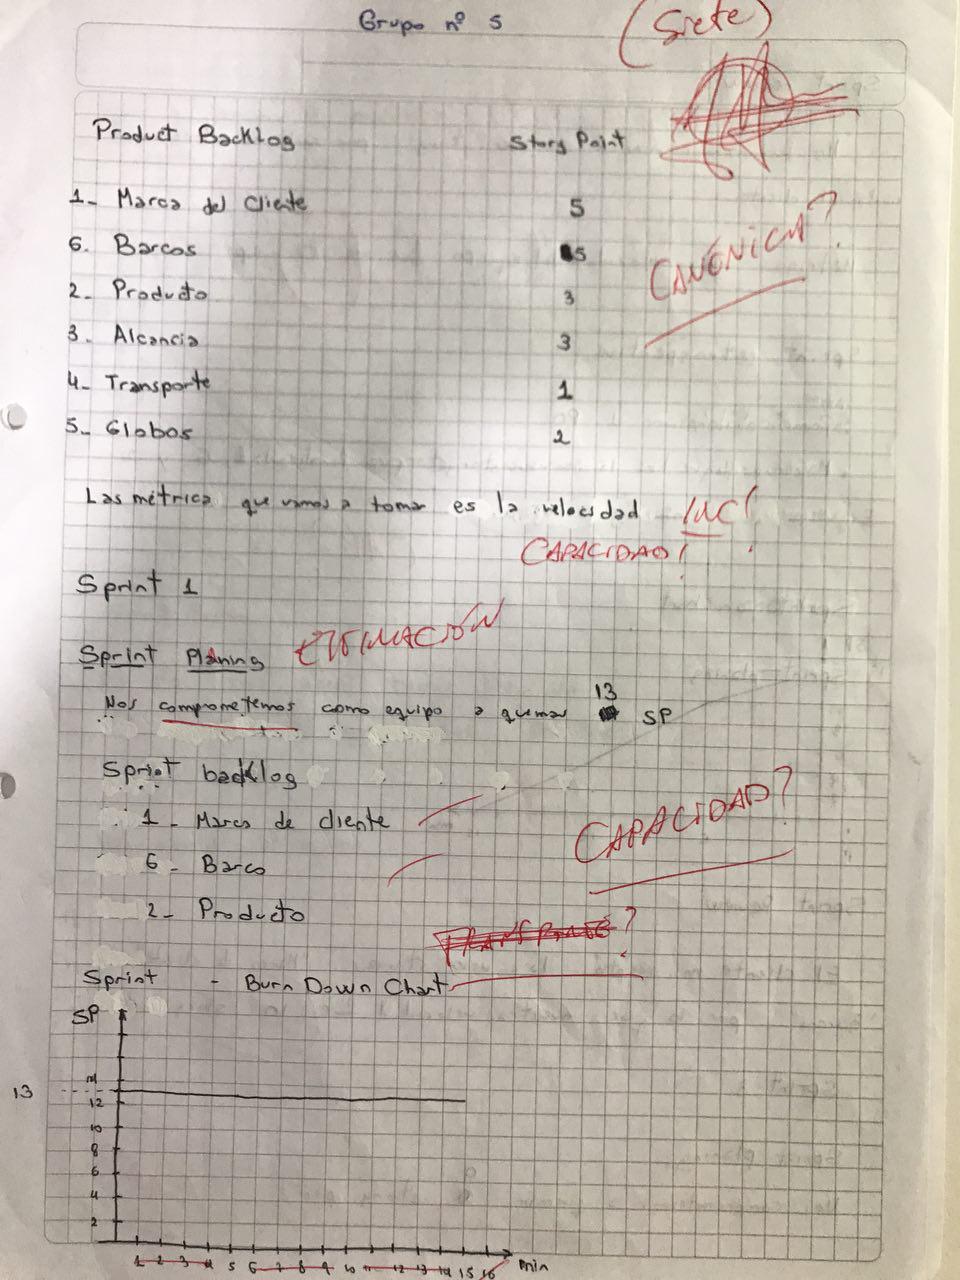 Grupo nº 5
(Siete)
Product Backlog Story Point
1- Marca del cliente 5
6. Barcos 5
CANÓNICA?
2- Producto 3
3. Alcancia 3
4- Transporte 1
5- Globos 2
Las métrica que vamos a tomar es la velocidad INC!
CAPACIDAD!
Sprint 1
Sprint Planing ESTIMACIÓN
Nos comprometemos como equipo a quemar 13 SP
Sprint backlog
1- Marca de cliente
CAPACIDAD?
6- Barco
2- Producto
?
Sprint - Burn Down Chart
SP
13
14
12
10
8
6
4
2
1 2 3 4 5 6 7 8 9 10 11 12 13 14 15 16 min